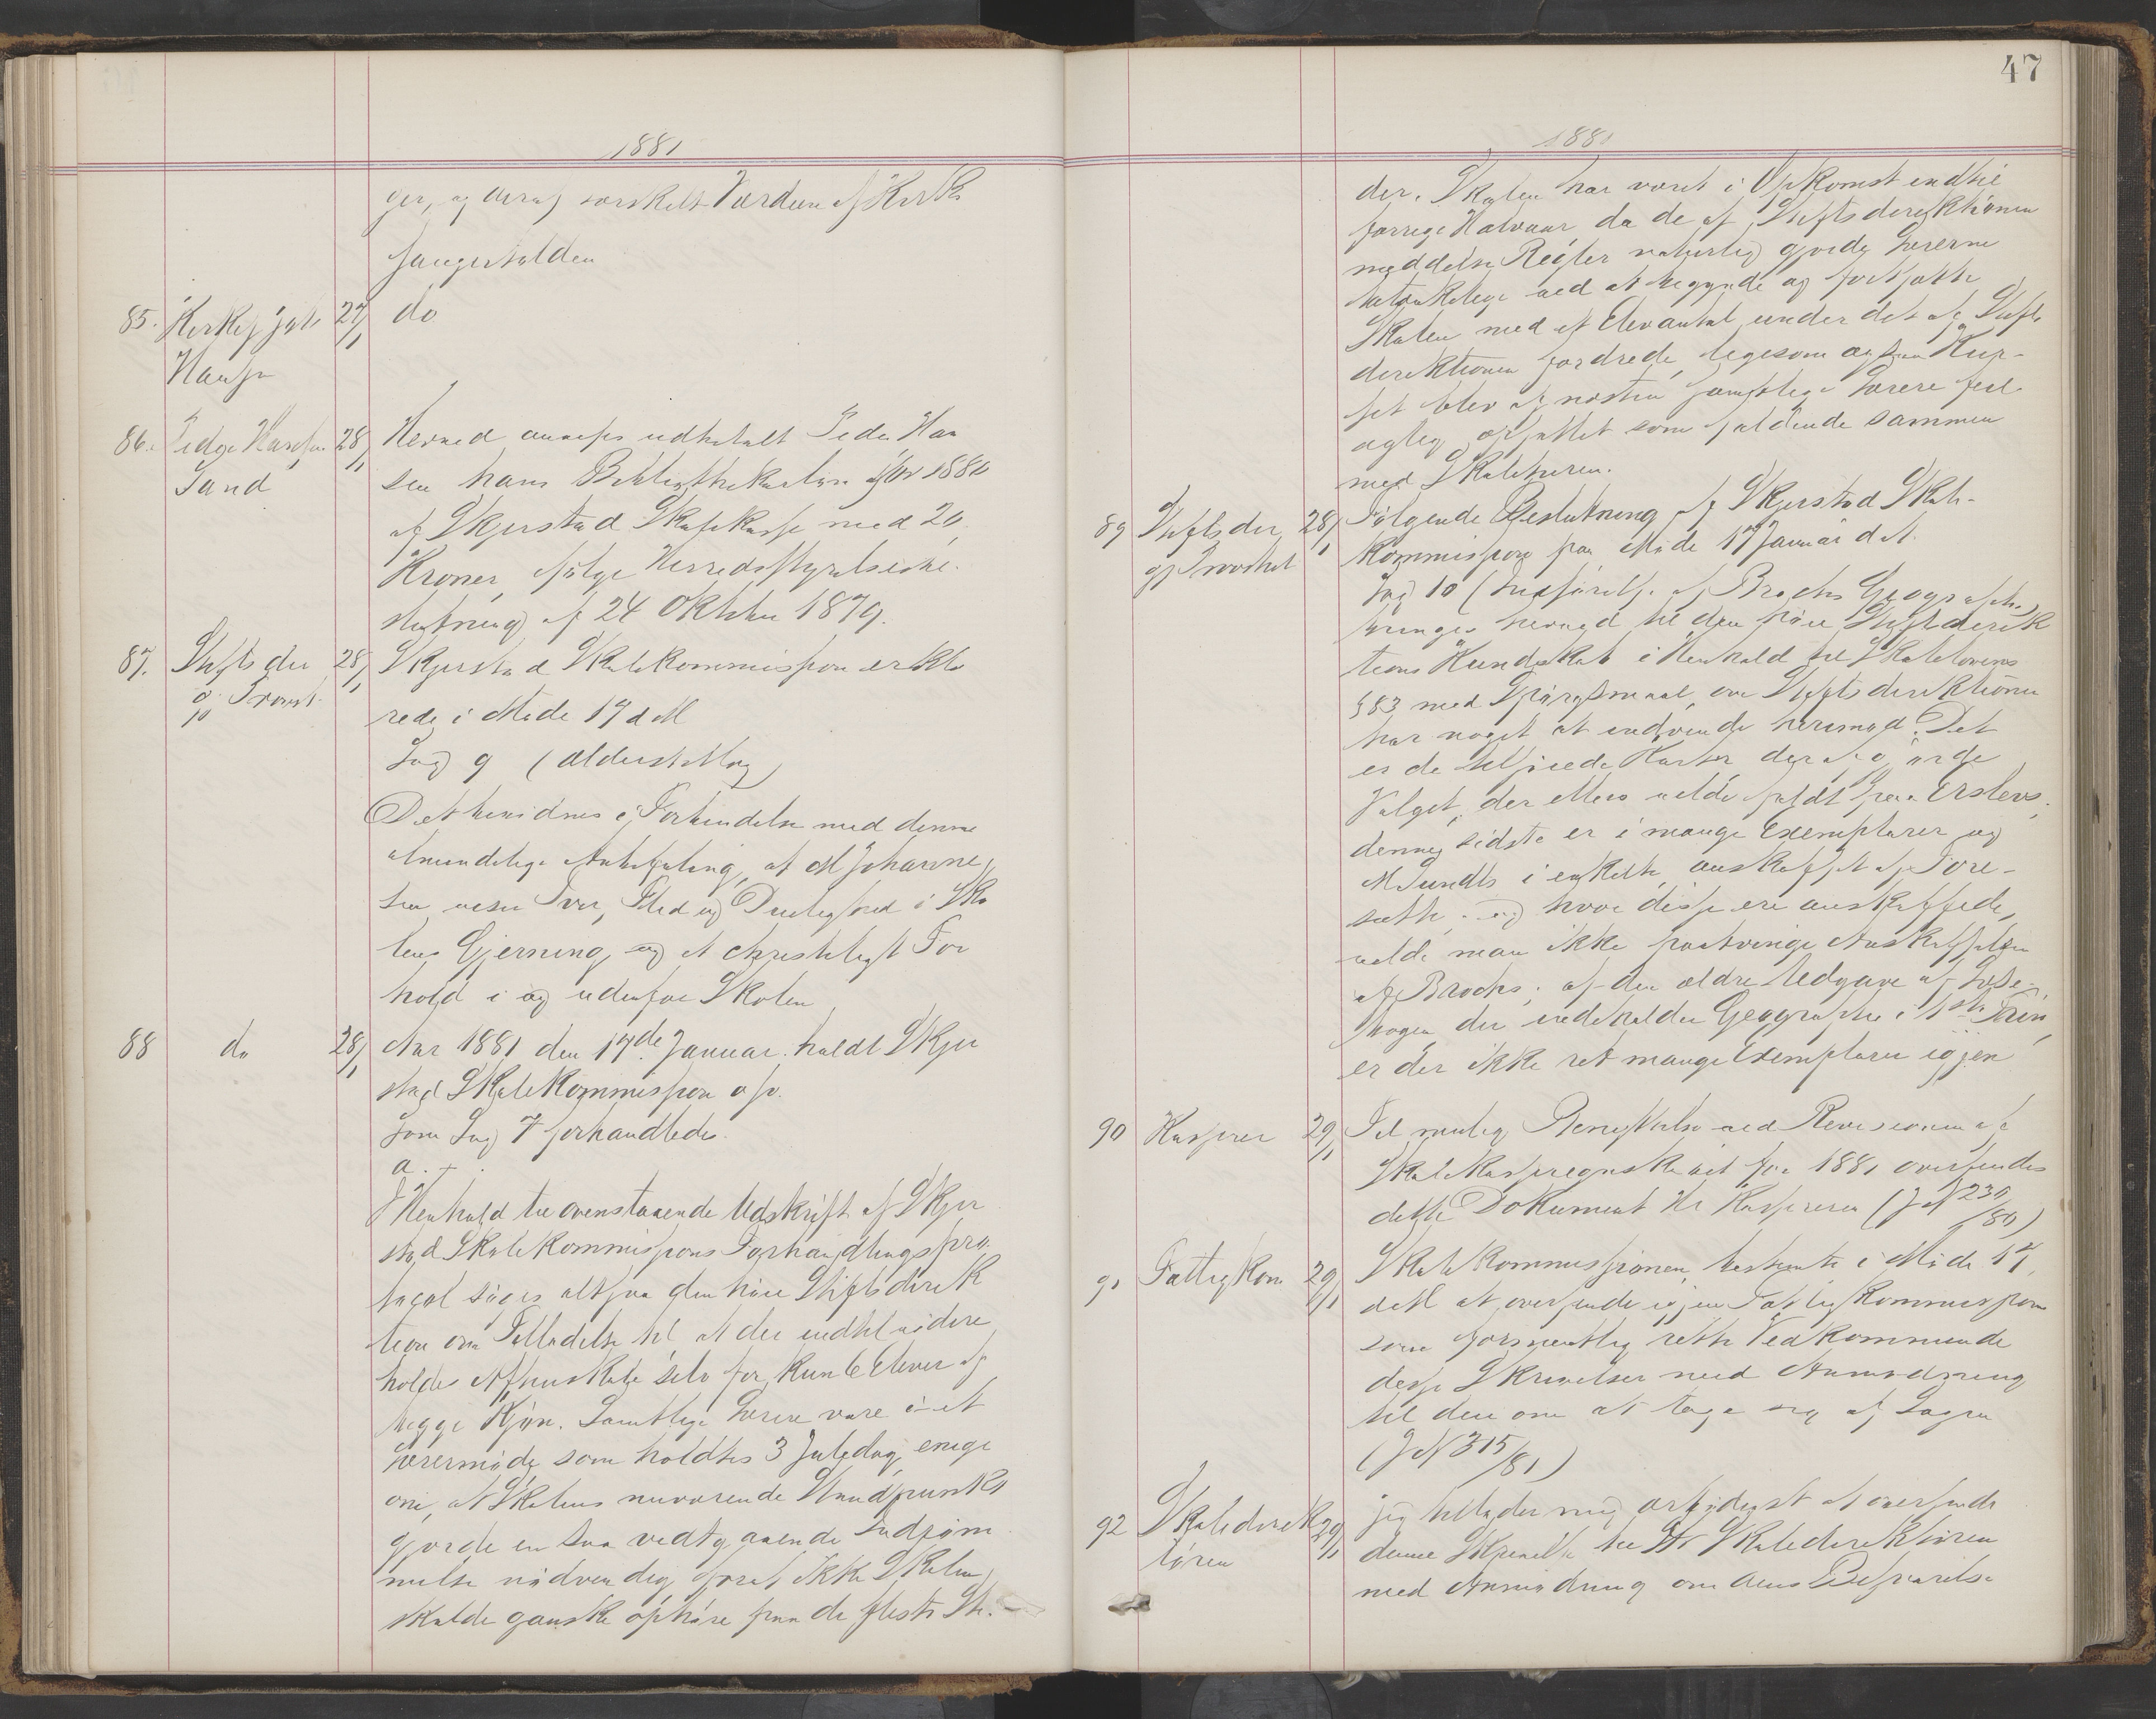 1881
ger, og deraf særskelt Værdien af Kirke
sangerholden
85. Kirkesj Joh 27/1 do
Hansen
86. Peder Hansen 28/1 Herved anvises udbetalt Peder Han
Sand
sen hans Bibliothekarløn for 1880
af Skjerstad Skolekasse med 20
Kroner, ifølge Herredsstyrelsesbe-
slutning af 24 Oktober 1879.
87. Stiftsdir 28/1 Skjerstad Skolekommission erklæ
og Provst
rede i Møde 17 d M
Sag 9 (Alderstillæg)
Det bevidnes i Forbindelse med denne
almindelige Anbefaling, at M Johanne
sen viser Iver, Flid og Duelighed i Sko
lens Gjerning og et christeligt For
hold i og udenfor Skolen
88 do 28/1 Aar 1881 den 17de Januar holdt Skjer
stad Skolekommission osv.
Som Sag 7 forhandledes.
a.
I Henhold til ovenstaaende Udskrift af Skjer
stad Skolekommissions Forhandlingspro-
tocol søges altsaa den høie Stiftsdirek
tion om Tilladelse til at der indtil videre
holdes Aftenskole selv for kun 6 Elever af
begge Kjøn. Samtlige Lærere vare i et
Lærermøde som holdtes 3 Juledag, enige
om, at Skolens nuværende Standpunkt
gjorde en saa vedtgaaende Indrøm
melse nødvendig forat ikke Skolen
skulde ganske ophøre paa de fleste Ste-
47
1881
der. Skolen har været i Opkomst indtil
forrige Halvaar da de af Stiftsdirektionen
meddelte Regler naturlig gjorde Lærerne
betænkelige ved at begynde og fortsætte
Skolen med et Elevantal under det af Stifts
direktionen fordrede, ligesom ogsaa Kur-
set blev af næsten samtlige Lærere feil
agtig opfattet som faldende sammen
med Skoleturen.
89 Stiftsdir 28/1 Følgende Beslutning af Skjerstad Skole-
og Provstiet
kommission paa Møde 17 Januar d A.
Sag 10 (Indførelse af Brochs Geographi)
bringes herved til den høie Stiftsdirek
tions Kundskab i Henhold til Skolelovens
§83 med Spørgsmaal, om Stiftsdirektionen
har noget at indvende herimod. Det
er de tilføiede Karter der afgjorde
Valget, der ellers vilde faldt paa Erslevs;
denne sidste er i mange Exemplarer og
M Sundts i enkelte anskaffet af Fore-
satte, og hvor disse ere anskaffede,
vilde man ikke paatvinge Anskaffelsen
af Brochs; af den ældre Udgave af Læse-
bogen der indeholder Geographi i 1ste Trin,
er der ikke ret mange Exemplarer igjen
90 Kasserer 29/1 Til mulig Benyttelse ved Revisionen af
Skolekasseregnskabet for 1881 oversendes
dette Dokument Hr Kassereren (J N 230/80)
91 Fattigkom 29/1 Skolekommissionen bestemte i Møde 17
d M at oversende igjen Fattigkommissionen
som formentlig rette Vedkommende
disse Skrivelser med Anmodning
til den om at tage sig af Sagen
(J N 315/81)
92 Skoledirek 29/1 jeg tillader mig ærbødigst at oversende
tøren
denne Skrivelse til Hr Skoledirektøren
med Anmodning om dens Besvarelse